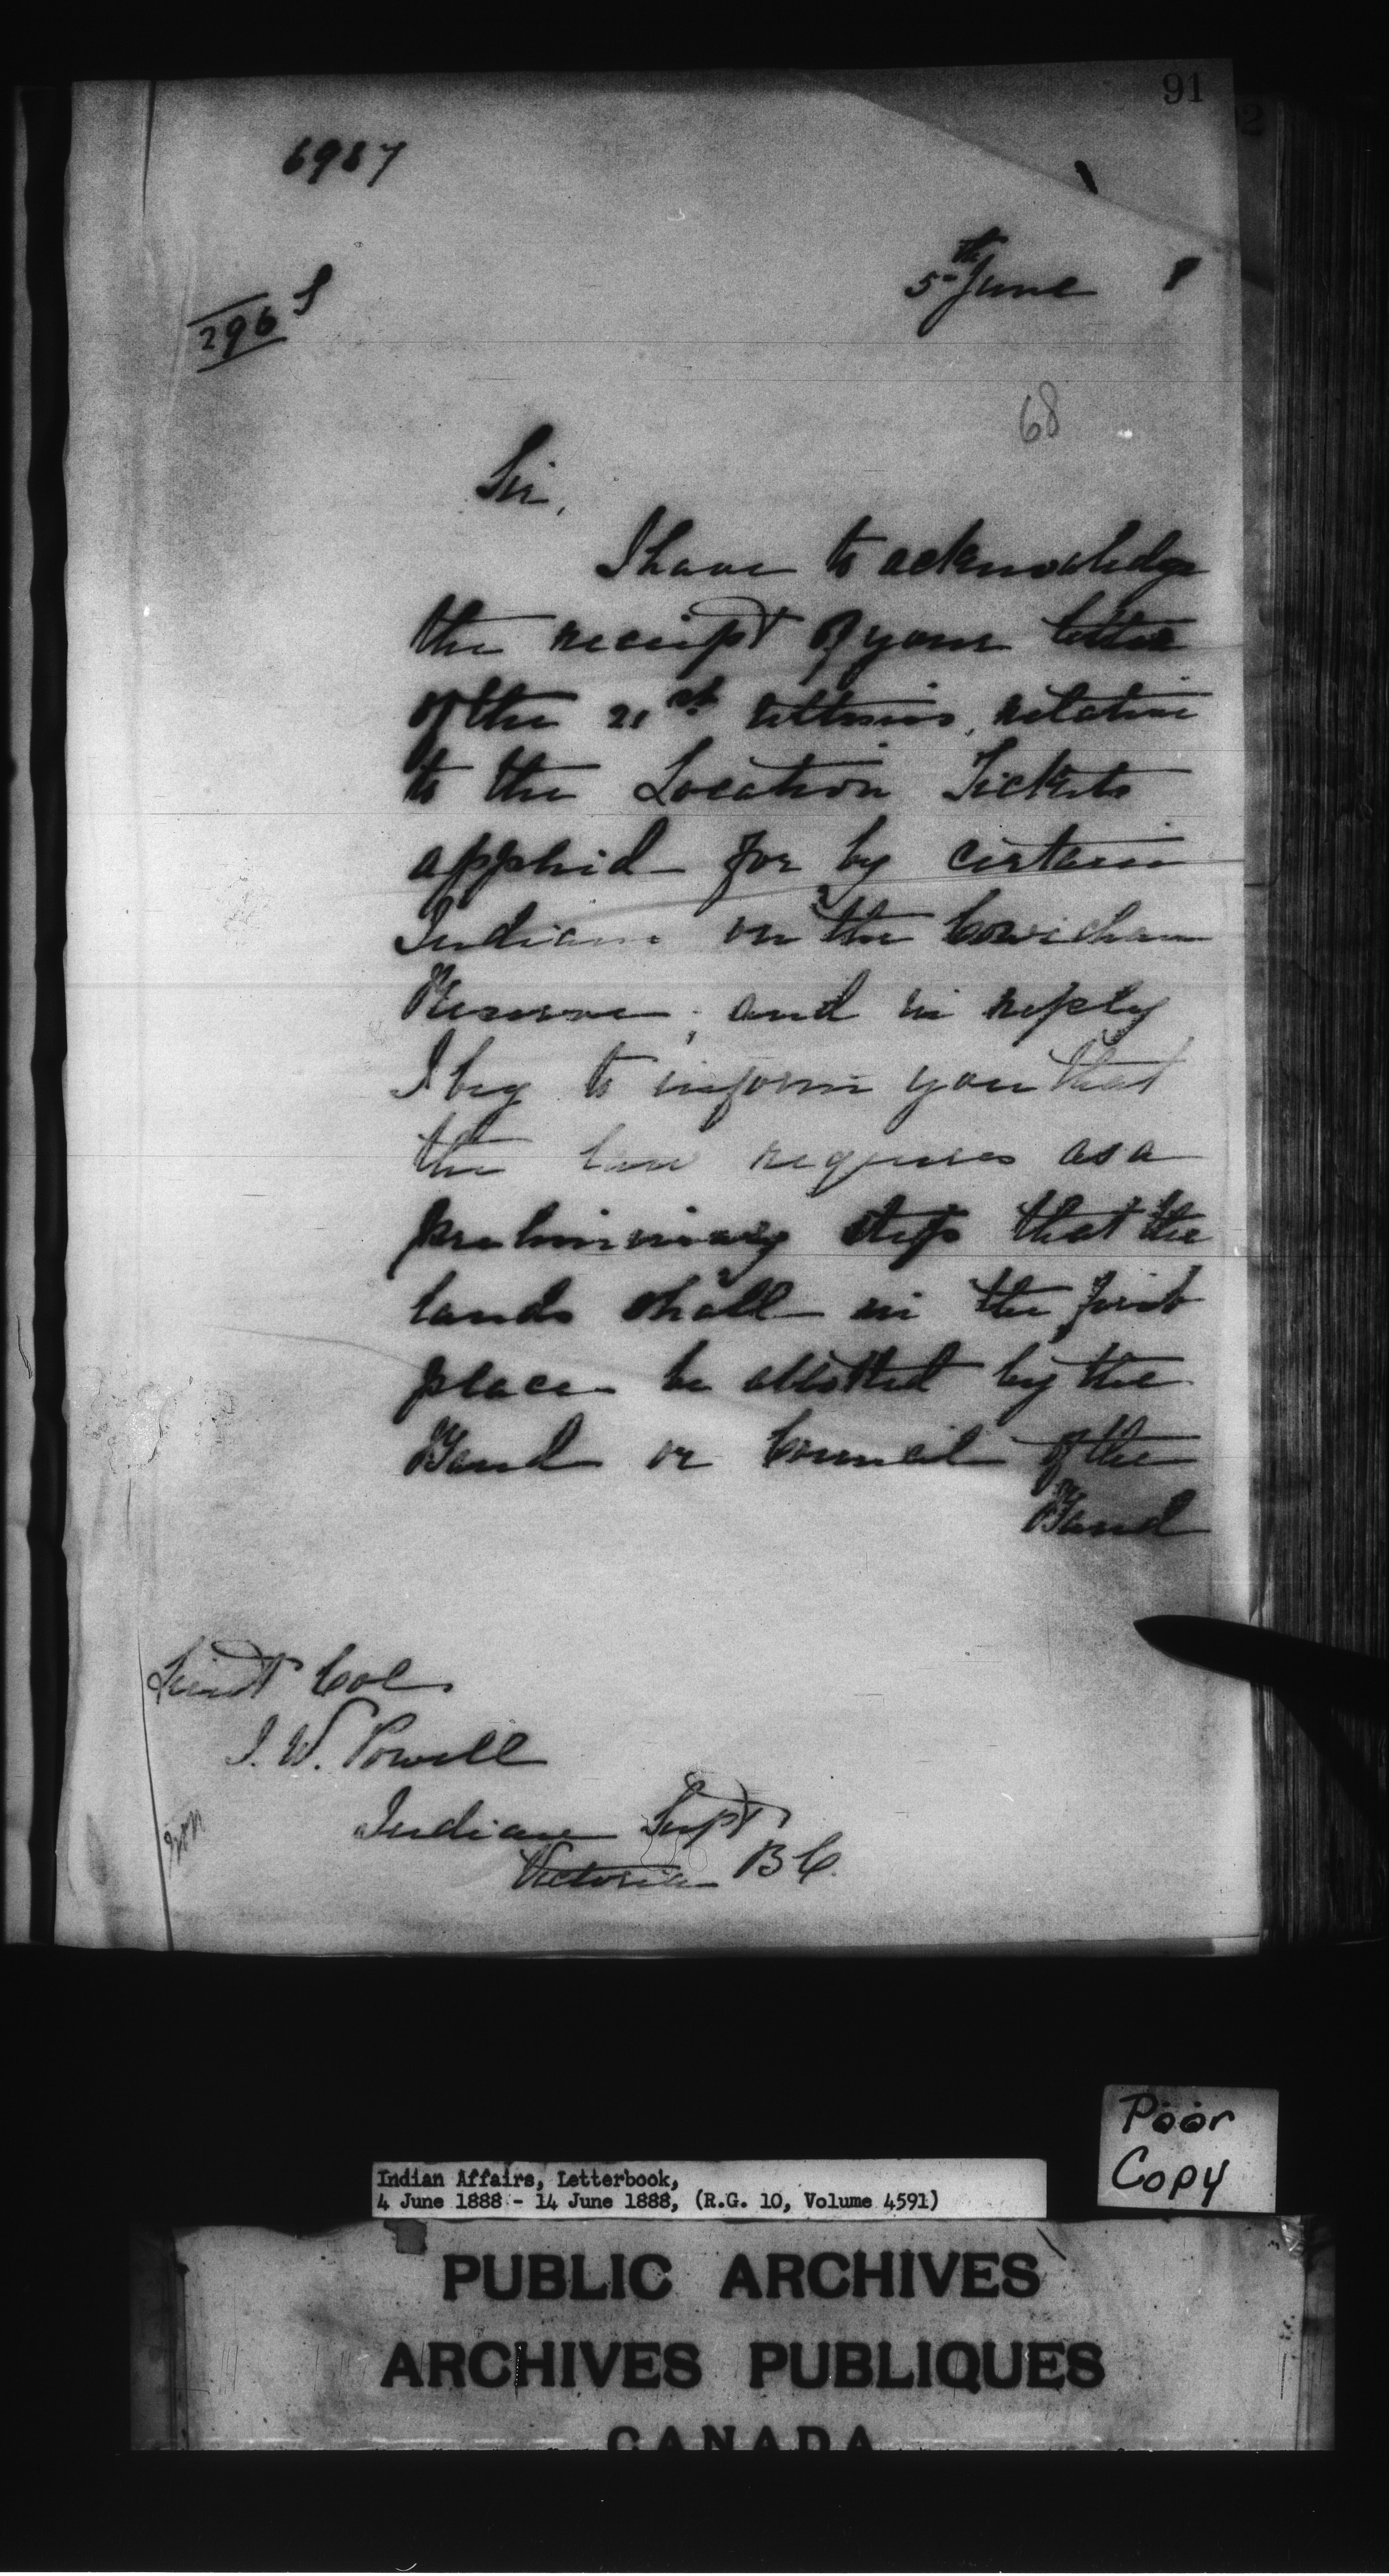 91
6987
5th June 8
296 S
68
Sir,
I have to acknowledge
the receipt of your letter
of the 21st ultimo, relative
to the Location Tickets
applied for by certain
Indians on the Cowichan
Reserve; and in reply
I beg to inform you that
the law requires as a
preliminary step that the
lands shall in the first
place be allotted by the
Band or Council of the
Band
Lieut Col
I. W. Powell
Indian Supt
Victoria B C.
Poor
Copy
Indian Affairs, Letterbook,
4 June 1888 - 14 June 1888, (R.G. 10, Volume 4591)
PUBLIC ARCHIVES
ARCHIVES PUBLIQUES
CANADA